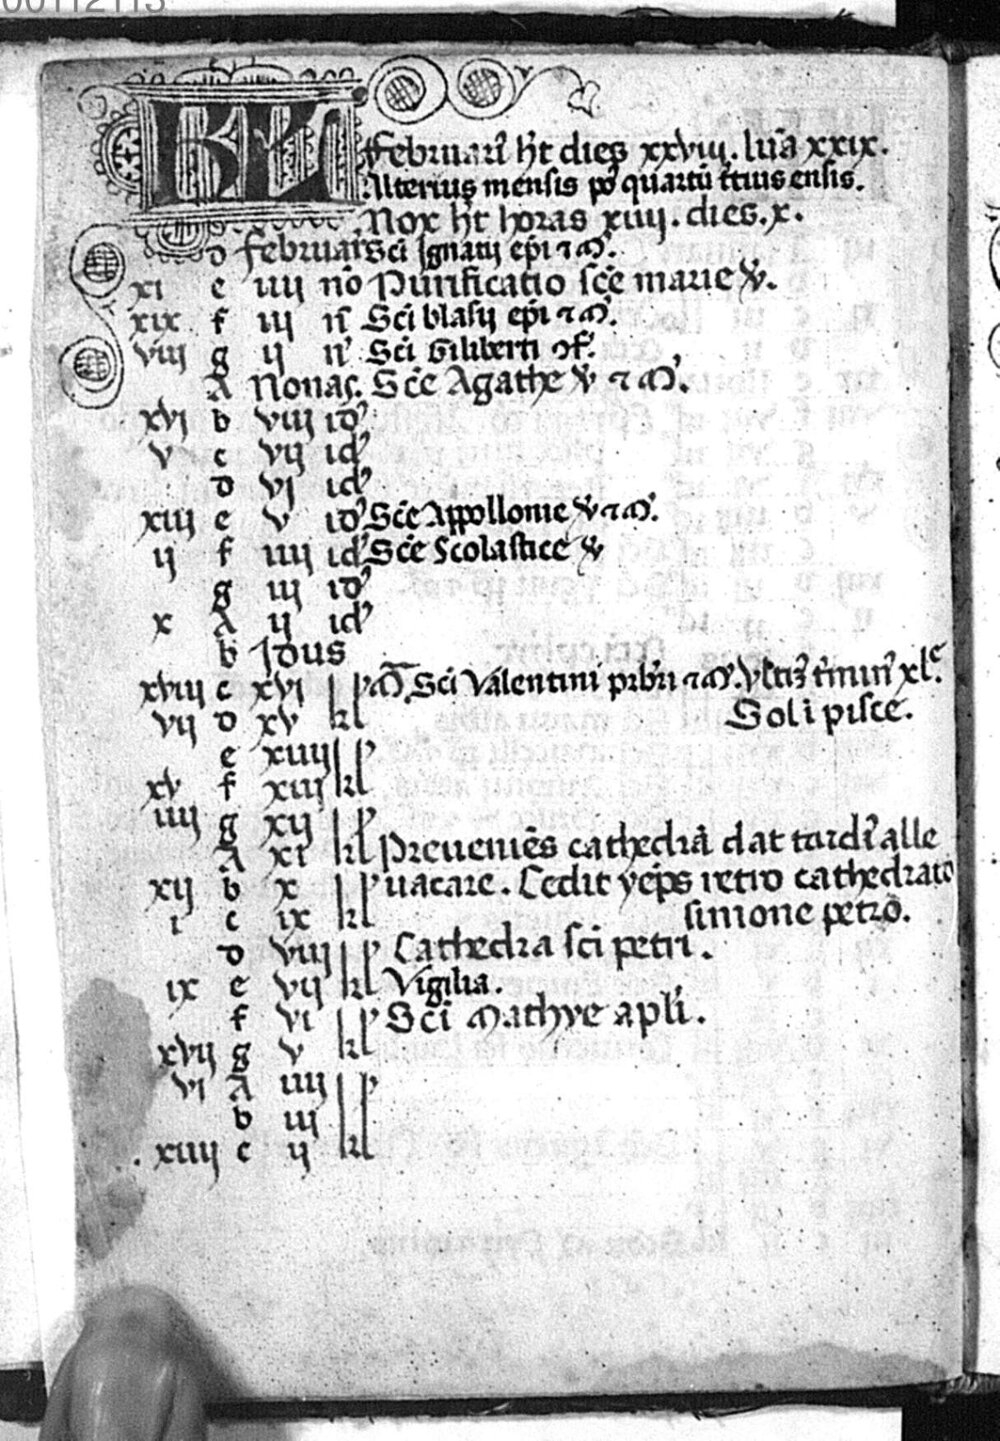 00112113
KL Februari᷒ h̄t dies xxviii. lūa xxix.
Alterius mensis pꝰ quartū t̄cius ensis.
Nox h̄t horas xiiii. dies. x.
d februariꝰ Sc̄i Ignatij ep̄i ⁊ M̄.
xi e iiij no᷒ Purificatio sc̄e marie v̄.
xix f iij n᷒ Sc̄i blasij ep̄i ⁊ M̄.
viij g ij n᷒ Sc̄i Giliberti ↄf.
A Nonas. Sc̄e Agathe v̄ ⁊ M̄.
xvi b viij id᷒
v c vij id᷒
d vi id᷒
xiij e v id᷒ Sc̄e Appollonie v̄ ⁊ M̄.
ij f iiij id᷒ Sc̄e Scolastice v̄
g iij id᷒
x A ij id᷒
b Idus
xviij c xvi kl M̄. Sc̄i Valentini prb̄ri ⁊ M̄. xl.ᵉ
vij d xv kl Sol i pisce.
e xiiij kl
xv f xiij kl
iiij g xij kl
A xi kl Preueniēs cathedrā dat tardi᷒ alle
xij b x kl uacare. Cedit retro cathedrato
i c ix kl simone petro.
d viij kl Cathedra sc̄i petri.
ix e vij kl Vigilia.
f vi kl Sc̄i Mathye apl̄i.
xvij g v kl
vi A iiij kl
b iij kl
xiiij c ij kl